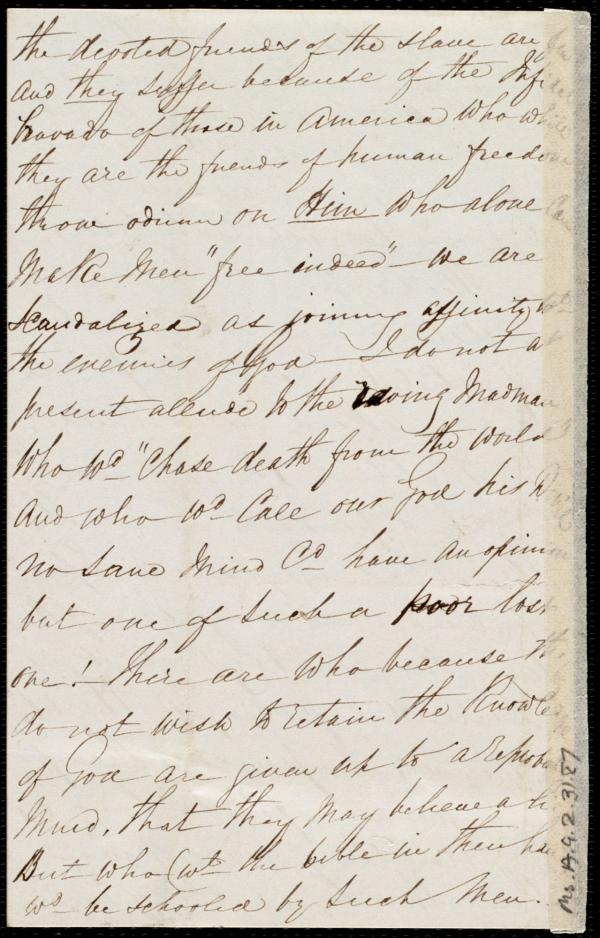 the devoted friends of the slave are
and they suffer because of the Inf
bravado of those in America who while
they are the friends of human freedom
throw odium on Him who alone can
make men "free indeed" - we are
scandalized as joining affinity wt
the enemies of God - I do not at
present allude to the raving Madman
who wd "chase death from the world"
and who wd call our God his
no sane mind cd have an opinion
but one of such a poor lost
one! There are who because they
do not wish to retain the knowledge
of God are given up to a reproba
mind, that they may believe a li
But who (wt the bible in their ha
wd be schooled by such men.
Ms. A.9.2.31.27